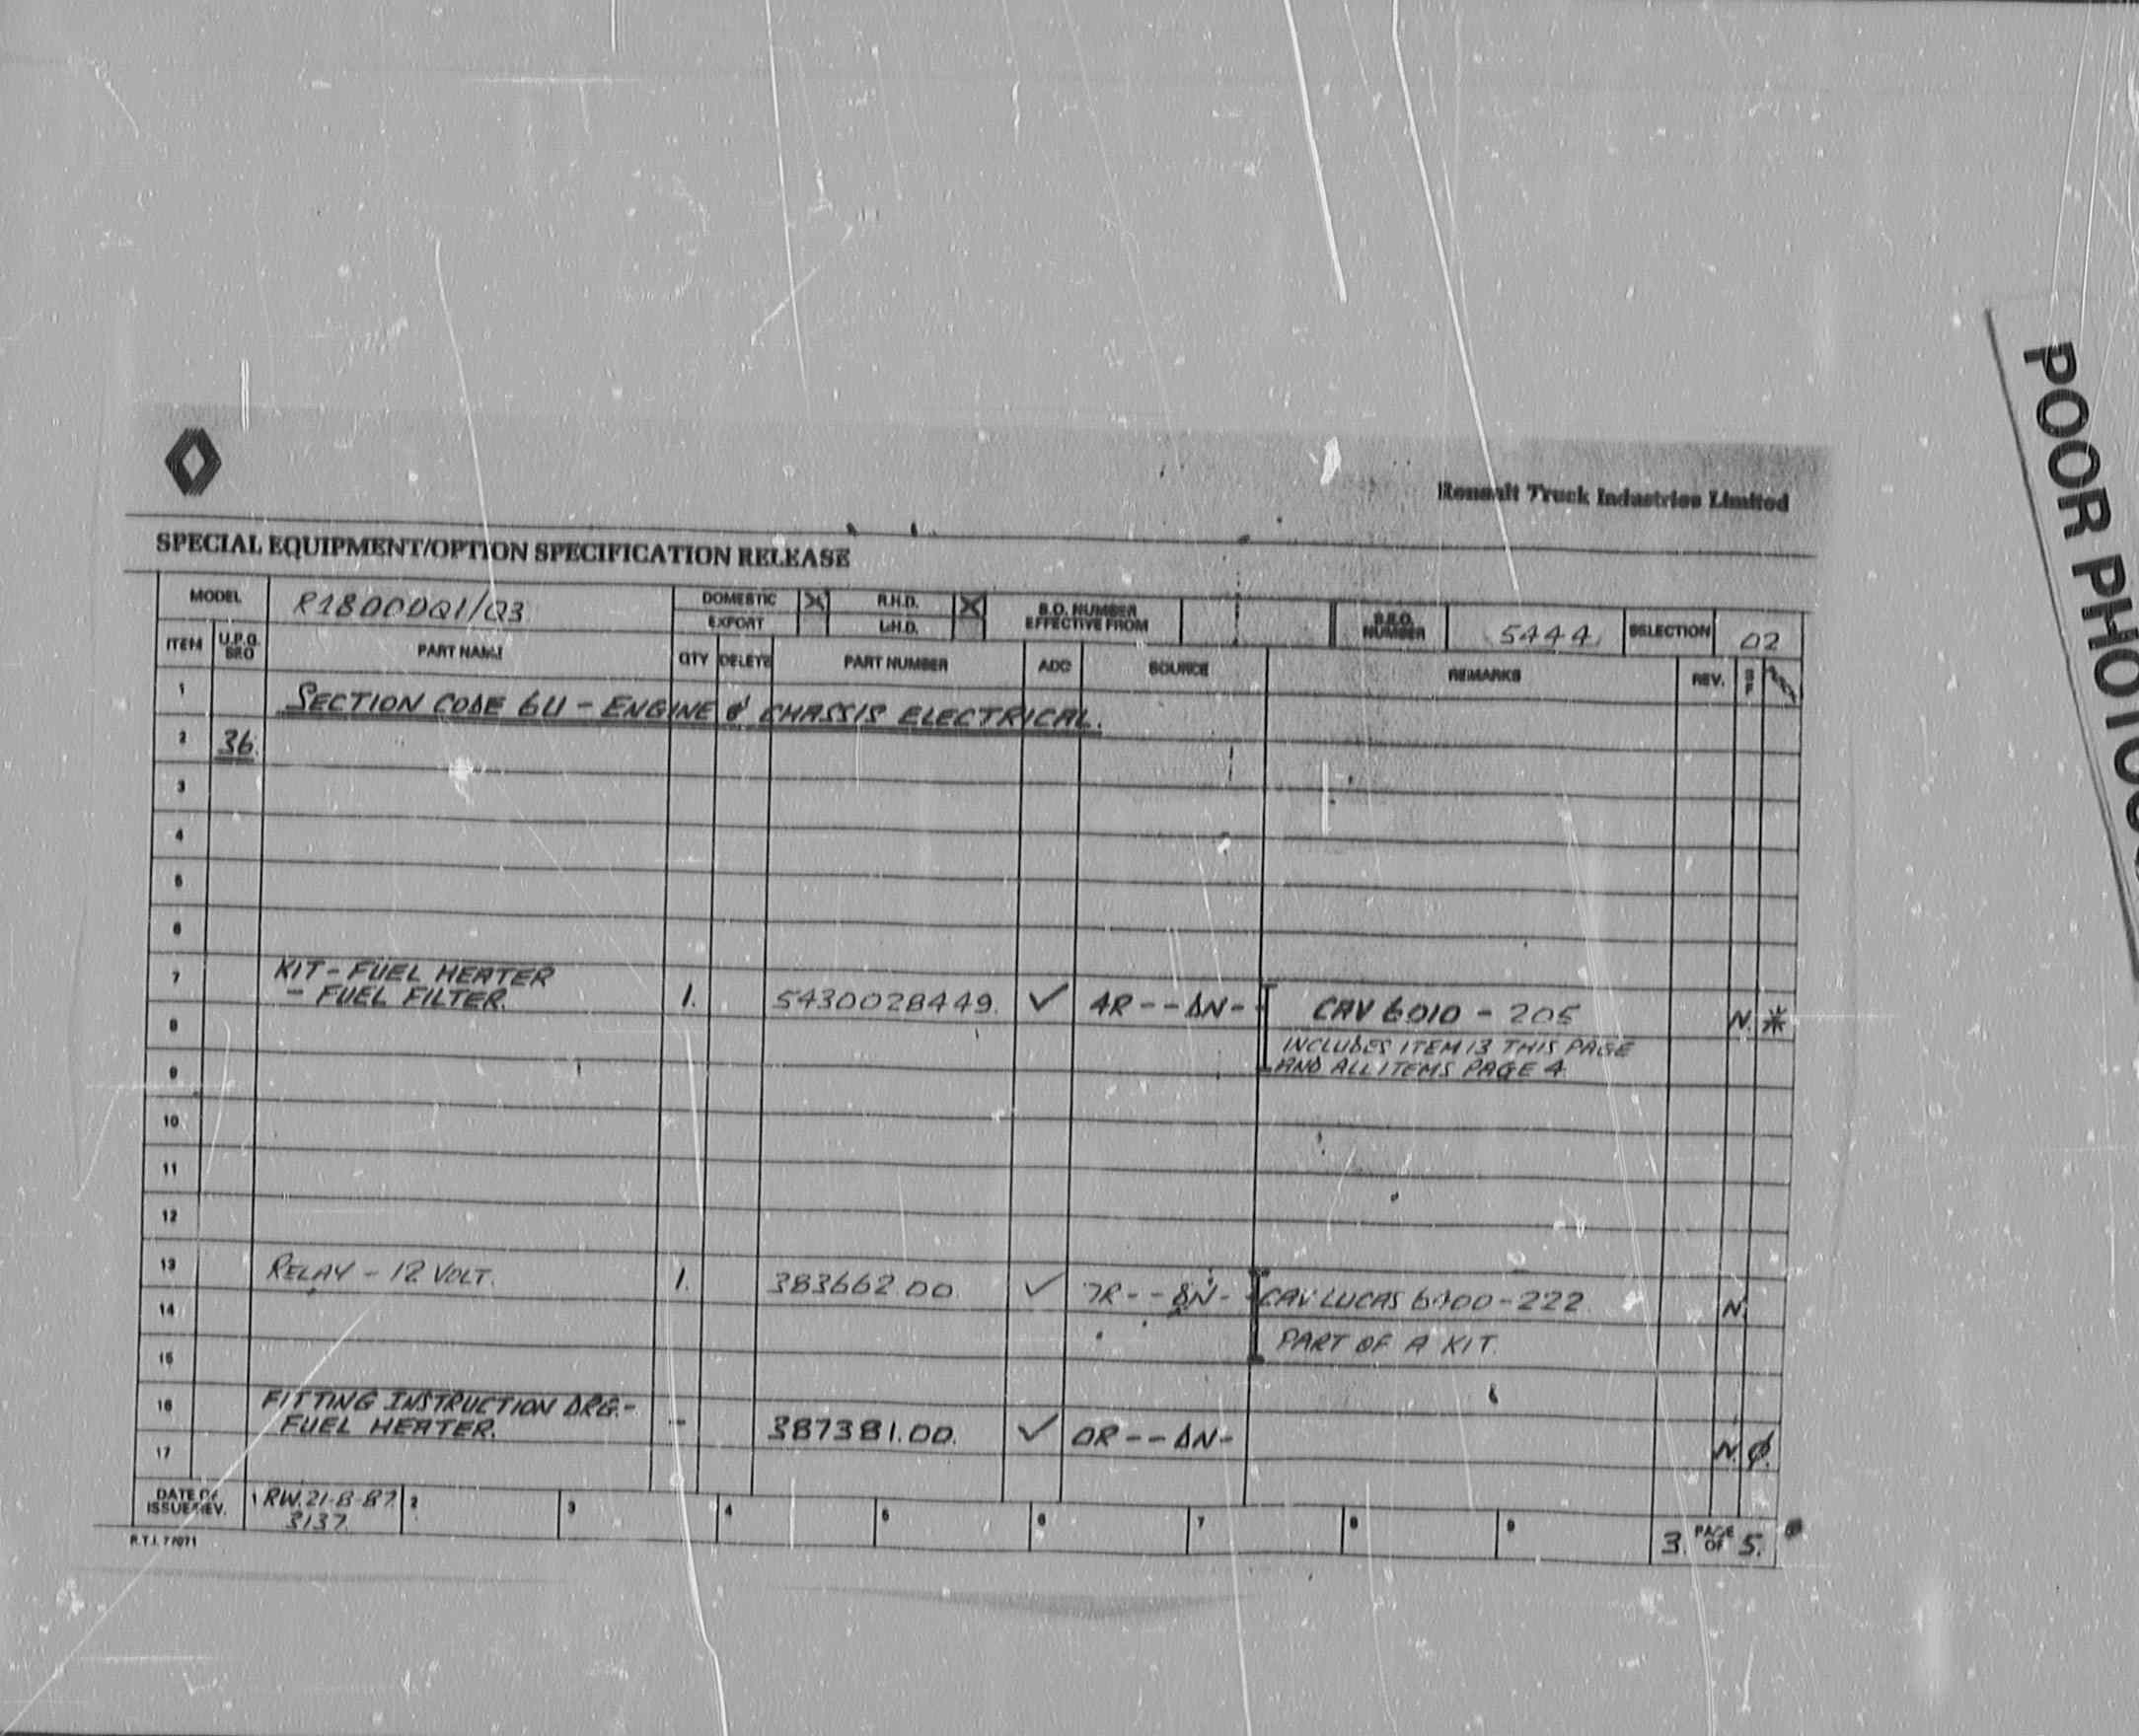 Renault Truck Industries Limited
SPECIAL EQUIPMENT/OPTION SPECIFICATION RELEASE
MODEL R1800DQ1/Q3 DOMESTIC X R.H.D. X S.O. NUMBER EFFECTIVE FROM S.R.O. NUMBER 5444 SELECTION 02
EXPORT L.H.D.
ITEM U.P.G. PART NAME QTY DELETE PART NUMBER ADC SOURCE REMARKS REV. S F
1 SECTION CODE 6U - ENGINE & CHASSIS ELECTRICAL.
2 36.
3
4
5
6
7 KIT - FUEL HEATER
- FUEL FILTER. 1. 5430028449. ✓ 4R--ΔN- CAV 6010 - 205 N. *
8 INCLUDES ITEM 13 THIS PAGE
9 AND ALL ITEMS PAGE 4.
10
11
12
13 RELAY - 12 VOLT. 1. 383662.00 ✓ 7R--8N- CAV LUCAS -222 N.
14 PART OF A KIT.
15
16 FITTING INSTRUCTION DRG.-
FUEL HEATER. - 387381.00. ✓ 0R--ΔN- N. ∅.
17
DATE OF ISSUE/REV. 1 RW. 21-8-87 2 3 4 5 6 7 8 9 3. PAGE OF 5.
3137.
R.T.I. 77071
POOR